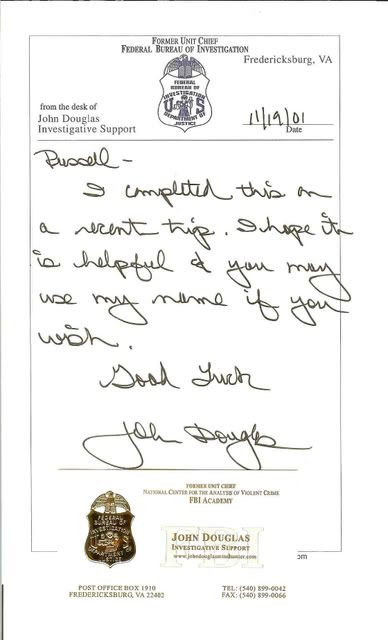 FORMER UNIT CHIEF
FEDERAL BUREAU OF INVESTIGATION
Fredericksburg, VA
FEDERAL
BUREAU OF
INVESTIGATION
U S
DEPARTMENT OF
JUSTICE
from the desk of
John Douglas
Investigative Support
11/19/01
Date
Russell –
I completed this on
a recent trip. I hope it
is helpful & you may
use my name if you
wish.
Good Luck
John Douglas
FORMER UNIT CHIEF
NATIONAL CENTER FOR THE ANALYSIS OF VIOLENT CRIME
FBI ACADEMY
FEDERAL
BUREAU OF
INVESTIGATION
DEPARTMENT
FBI
JOHN DOUGLAS
INVESTIGATIVE SUPPORT
www.johndouglasmindhunter.com
om
POST OFFICE BOX 1910
FREDERICKSBURG, VA 22402
TEL: (540) 899-0042
FAX: (540) 899-0066